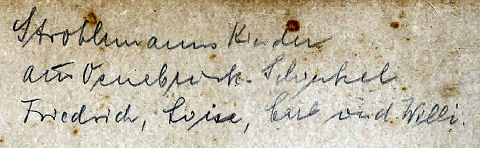 Strothmanns Kinder
aus Osnabrück-Schinkel
Friedrich, Luise, Carl und Willi.